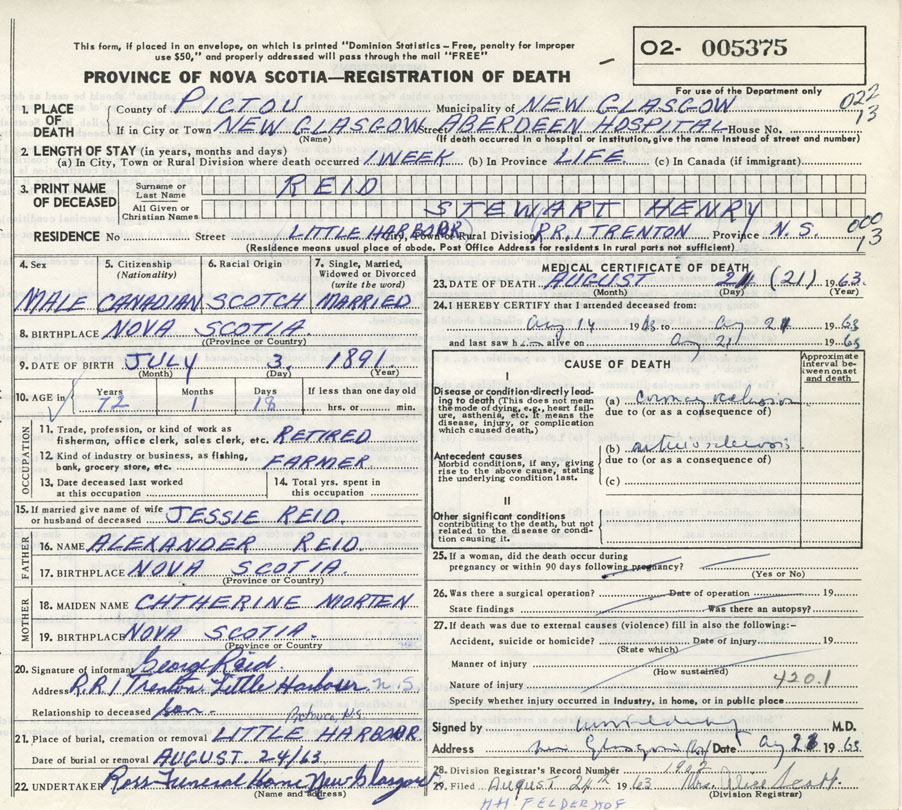 This form, if placed in an envelope, on which is printed "Dominion Statistics – Free, penalty for improper
use $50," and properly addressed will pass through the mail "FREE"
O2- 005375
PROVINCE OF NOVA SCOTIA—REGISTRATION OF DEATH
For use of the Department only
022
13
1. PLACE OF DEATH
County of PICTOU Municipality of NEW GLASGOW
If in City or Town NEW GLASGOW Street ABERDEEN HOSPITAL House No.
(Name) (If death occurred in a hospital or institution, give the name instead of street and number)
2. LENGTH OF STAY (in years, months and days)
(a) In City, Town or Rural Division where death occurred 1 WEEK (b) In Province LIFE (c) In Canada (if immigrant)
3. PRINT NAME OF DECEASED
Surname or Last Name REID
All Given or Christian Names STEWART HENRY
RESIDENCE No Street LITTLE HARBOR City, Town or Rural Division R.R.1 TRENTON Province N.S.
000
13
(Residence means usual place of abode. Post Office Address for residents in rural parts not sufficient)
4. Sex 5. Citizenship (Nationality) 6. Racial Origin 7. Single, Married, Widowed or Divorced (write the word)
MALE CANADIAN SCOTCH MARRIED
8. BIRTHPLACE NOVA SCOTIA.
(Province or Country)
9. DATE OF BIRTH JULY 3. 1891
(Month) (Day) (Year)
10. AGE in Years Months Days If less than one day old
72 1 18 hrs. or min.
OCCUPATION
11. Trade, profession, or kind of work as fisherman, office clerk, sales clerk, etc. RETIRED
12. Kind of industry or business, as fishing, bank, grocery store, etc. FARMER
13. Date deceased last worked at this occupation
14. Total yrs. spent in this occupation
15. If married give name of wife or husband of deceased JESSIE REID.
FATHER
16. NAME ALEXANDER REID.
17. BIRTHPLACE NOVA SCOTIA.
(Province or Country)
MOTHER
18. MAIDEN NAME CHTHERINE MORTEN
19. BIRTHPLACE NOVA SCOTIA.
(Province or Country
20. Signature of informant George Reid.
Address R.R.1 Trenton. Little Harbour N.S.
Relationship to deceased Son.
Pictou Co, N.S.
21. Place of burial, cremation or removal LITTLE HARBOR.
Date of burial or removal AUGUST. 24/63
22. UNDERTAKER Ross Funeral Home New Glasgow
(Name and address)
MEDICAL CERTIFICATE OF DEATH
23. DATE OF DEATH AUGUST 21 (21) 1963.
(Month) (Day) (Year)
24. I HEREBY CERTIFY that I attended deceased from:
Aug 14 1963 to Aug 21 1963
and last saw him alive on Aug 21 1963
CAUSE OF DEATH
Approximate interval between onset and death
I
Disease or condition directly leading to death (This does not mean the mode of dying, e.g., heart failure, asthenia, etc. It means the disease, injury, or complication which caused death.)
(a) coronary occlusion
due to (or as a consequence of)
Antecedent causes
Morbid conditions, if any, giving rise to the above cause, stating the underlying condition last.
(b) arteriosclerosis
due to (or as a consequence of)
(c)
II
Other significant conditions
contributing to the death, but not related to the disease or condition causing it.
25. If a woman, did the death occur during
pregnancy or within 90 days following pregnancy?
(Yes or No)
26. Was there a surgical operation? Date of operation 19
State findings Was there an autopsy?
27. If death was due to external causes (violence) fill in also the following:–
Accident, suicide or homicide? Date of injury 19
(State which)
Manner of injury
(How sustained)
Nature of injury 420.1
Specify whether injury occurred in industry, in home, or in public place
Signed by M.D.
Address New Glasgow Date Aug 1963
28. Division Registrar's Record Number
29. Filed August 1963 Mrs. Alice Scott
(Division Registrar)
HH FELDERHOF